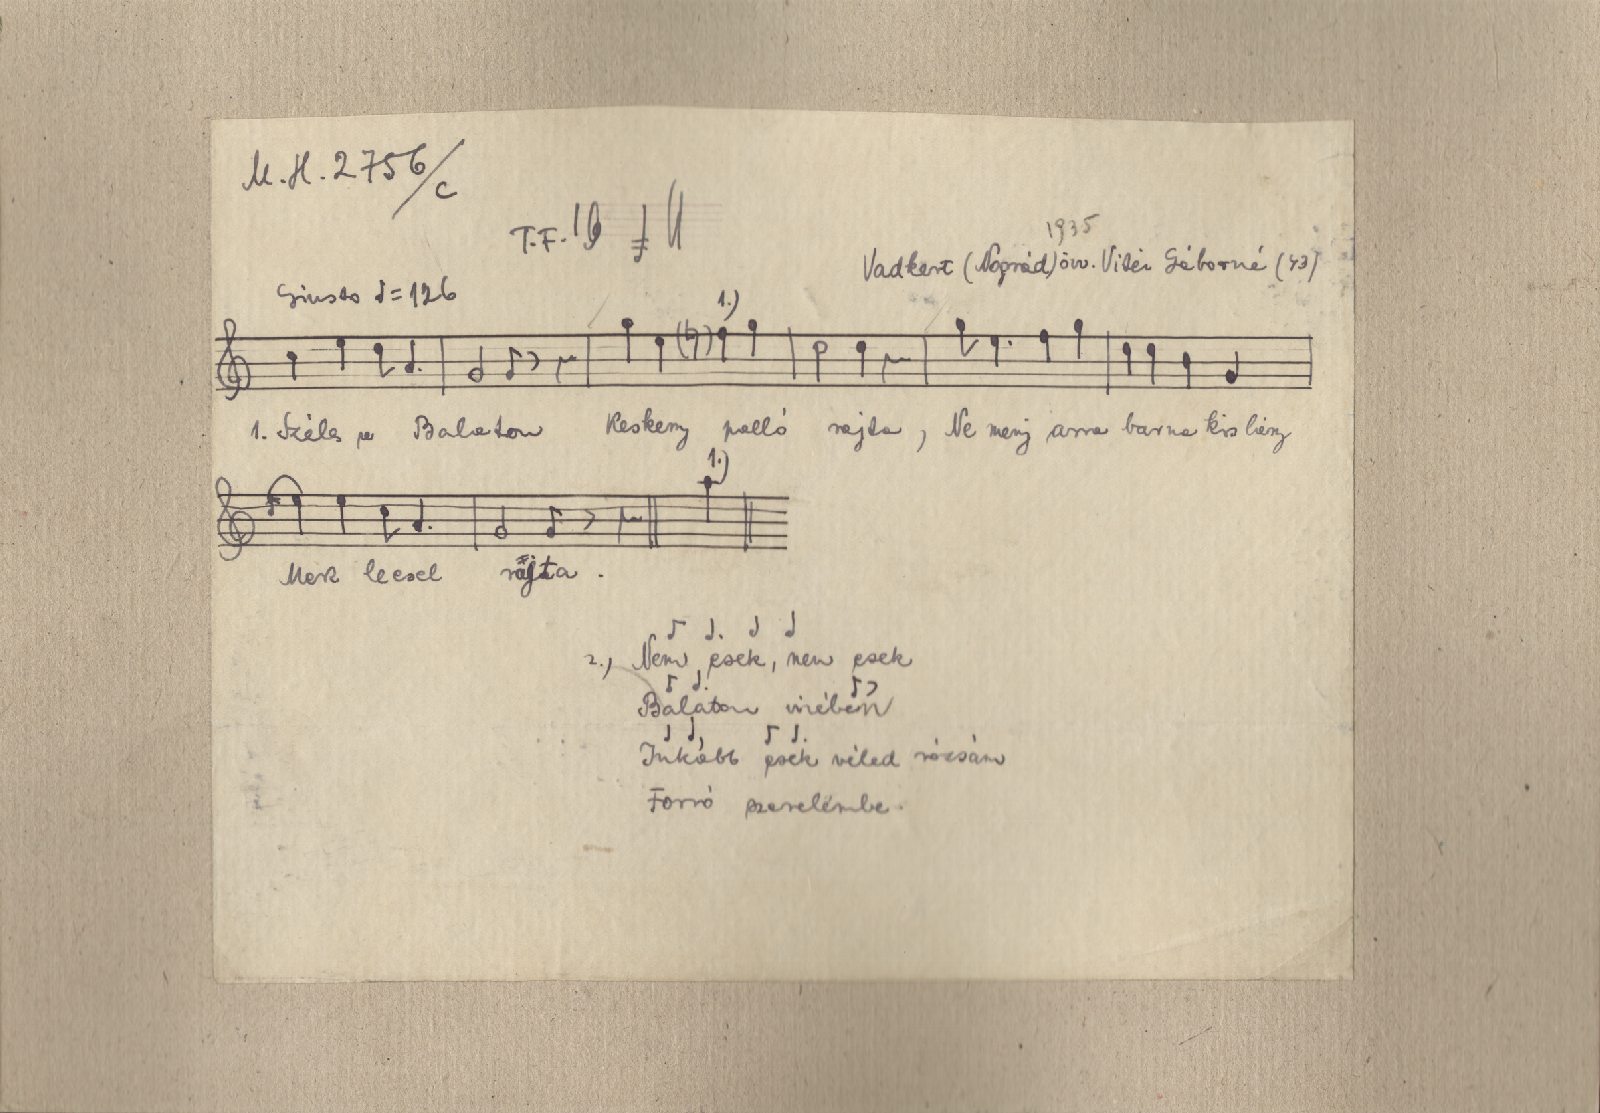 M.H. 2756/c
T.F.
1935
Vadkert (Nógrád) öv. Gáborné (43)
Giusto ♩=126
1.)
1. Széles a Balaton Keskeny palló rajta, Ne menj arra barna kis lány
1.)
Mert leesel rajta.
2., Nem esek, nem esek
Balaton vizében
Inkább esek véled rózsám
Forró szerelémbe.